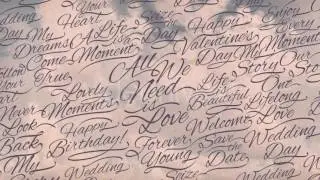 Wedding Your Heart Life is a Moment Seize the Day Happy Valentine's Day
Day My Dreams Come True
All We Need is Love
Life is Beautiful
Story Our
My Moment
One Lifelong
Lovely Moments
Never Look Back
Happy Birthday!
Forever Young
Welcome Love
Save the Date
Wedding Day
My
Wedding
Seize